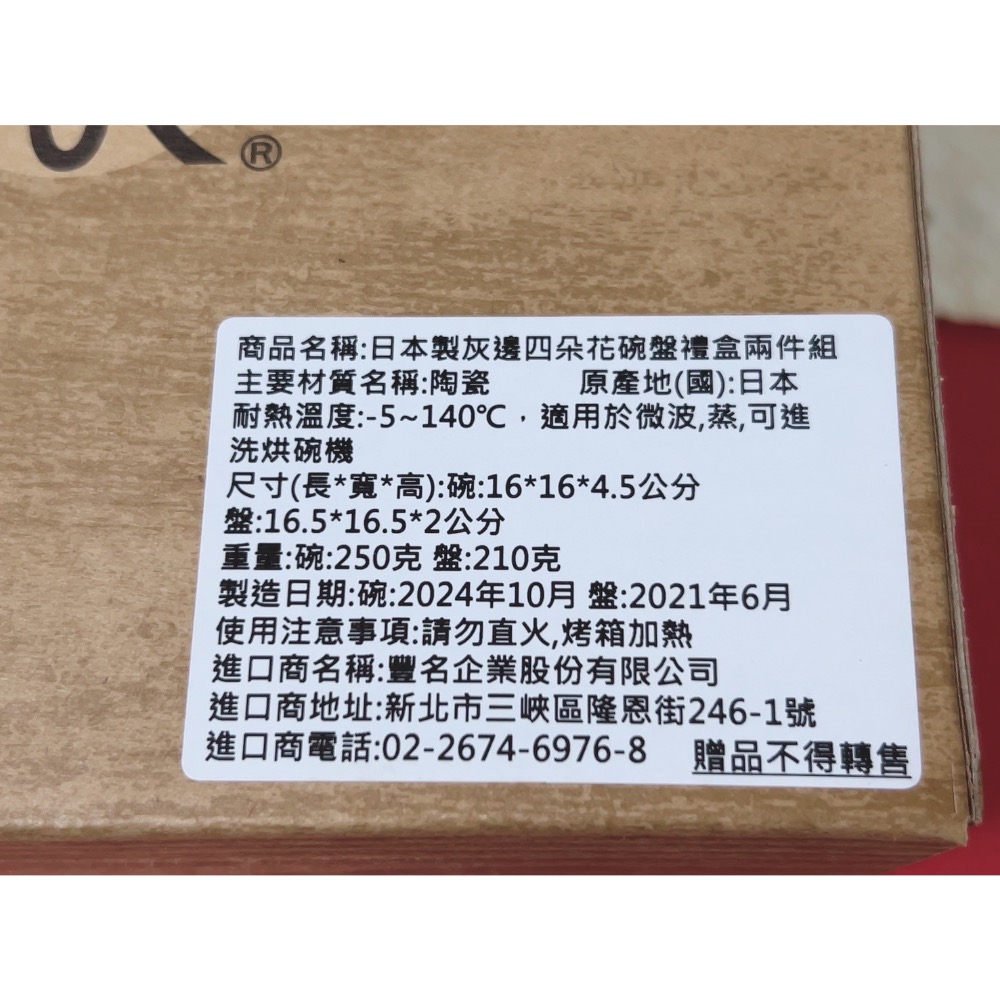 ®
商品名稱:日本製灰邊四朵花碗盤禮盒兩件組
主要材質名稱:陶瓷 原產地(國):日本
耐熱溫度:-5~140℃，適用於微波,蒸,可進
洗烘碗機
尺寸(長*寬*高):碗:16*16*4.5公分
盤:16.5*16.5*2公分
重量:碗:250克 盤:210克
製造日期:碗:2024年10月 盤:2021年6月
使用注意事項:請勿直火,烤箱加熱
進口商名稱:豐名企業股份有限公司
進口商地址:新北市三峽區隆恩街246-1號
進口商電話:02-2674-6976-8 贈品不得轉售